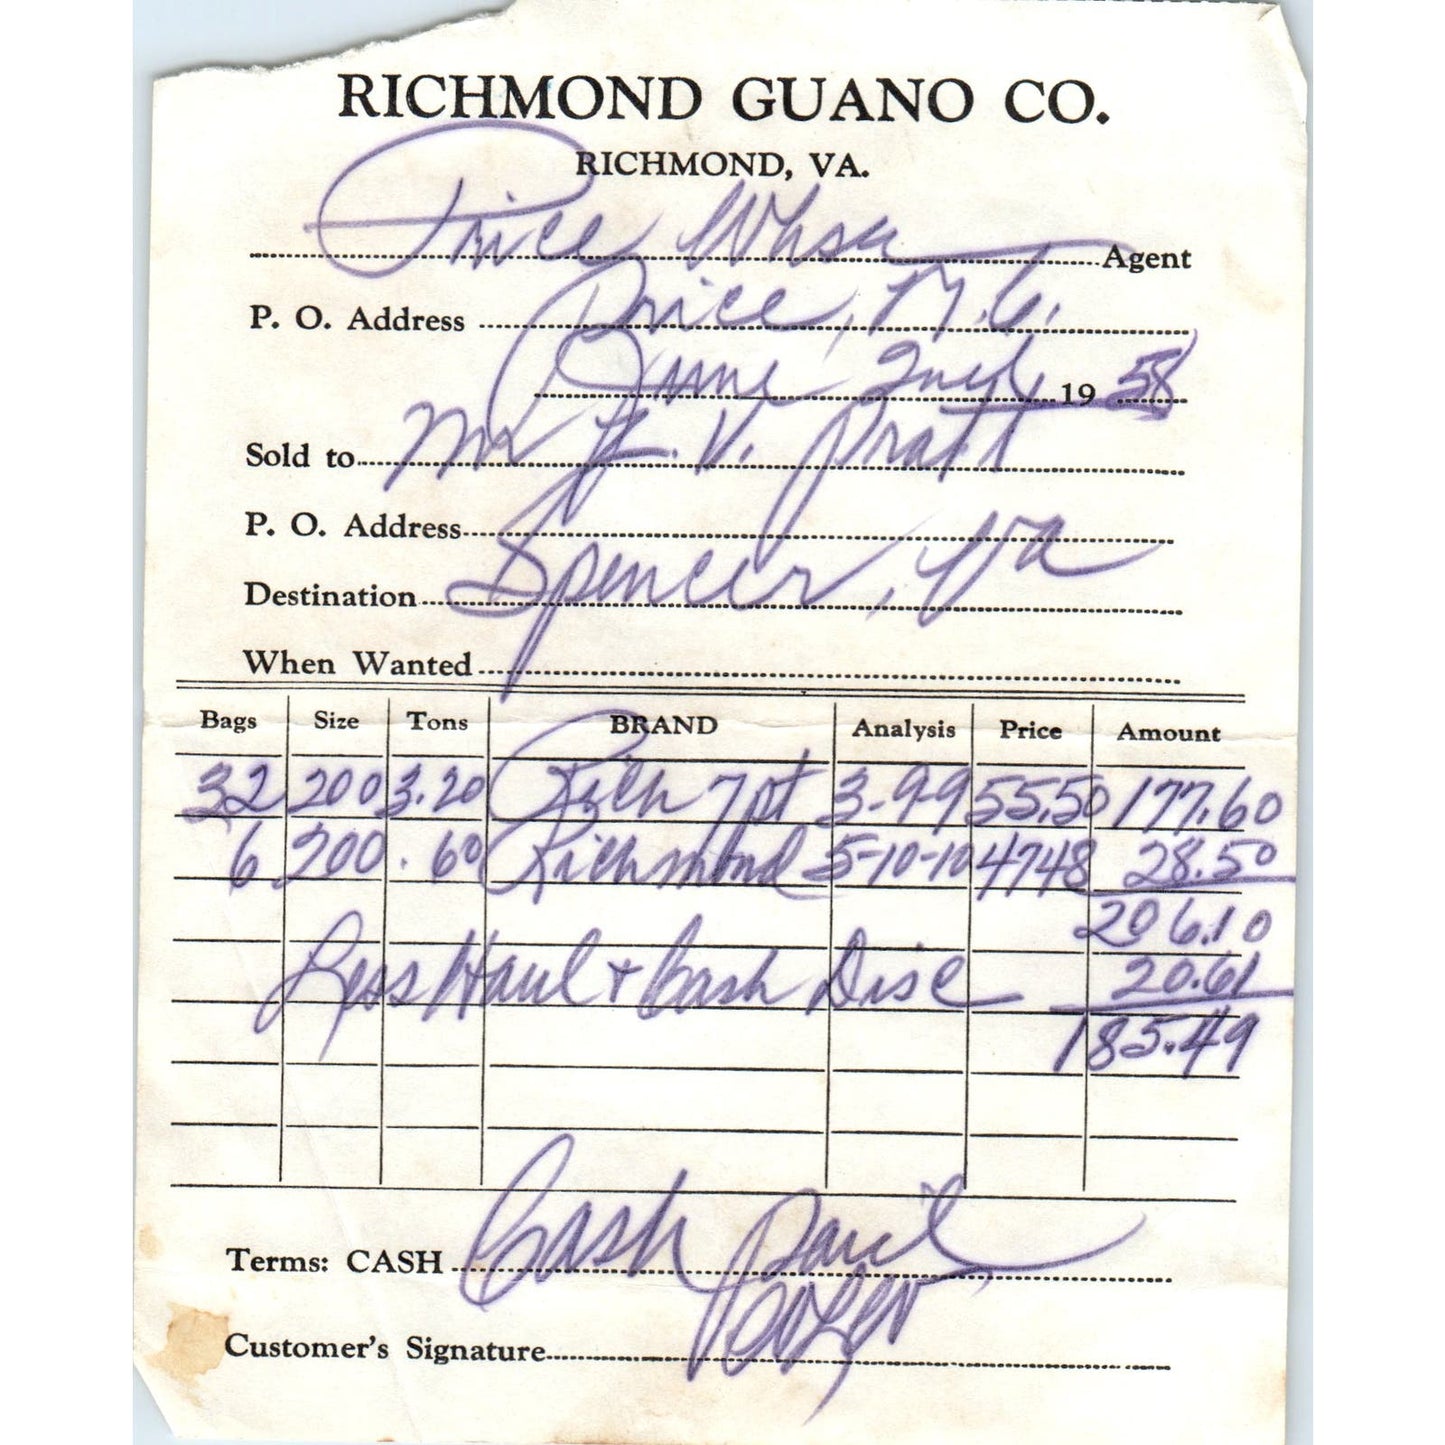 RICHMOND GUANO CO.
RICHMOND, VA.
Price Whse Agent
P. O. Address Price, N.C.
June 2nd, 19 58
Sold to Mr V. Pratt
P. O. Address
Destination Spencer, Va
When Wanted
Bags Size Tons BRAND Analysis Price Amount
32 200 3.20 Rich 7pt 3-9-9 55.50 177.60
6 200 .60 Richmond 5-10-10 4748 28.50
206.10
Less Haul + Cash Disc 20.61
185.49
Terms: CASH Cash Paid
Customer's Signature